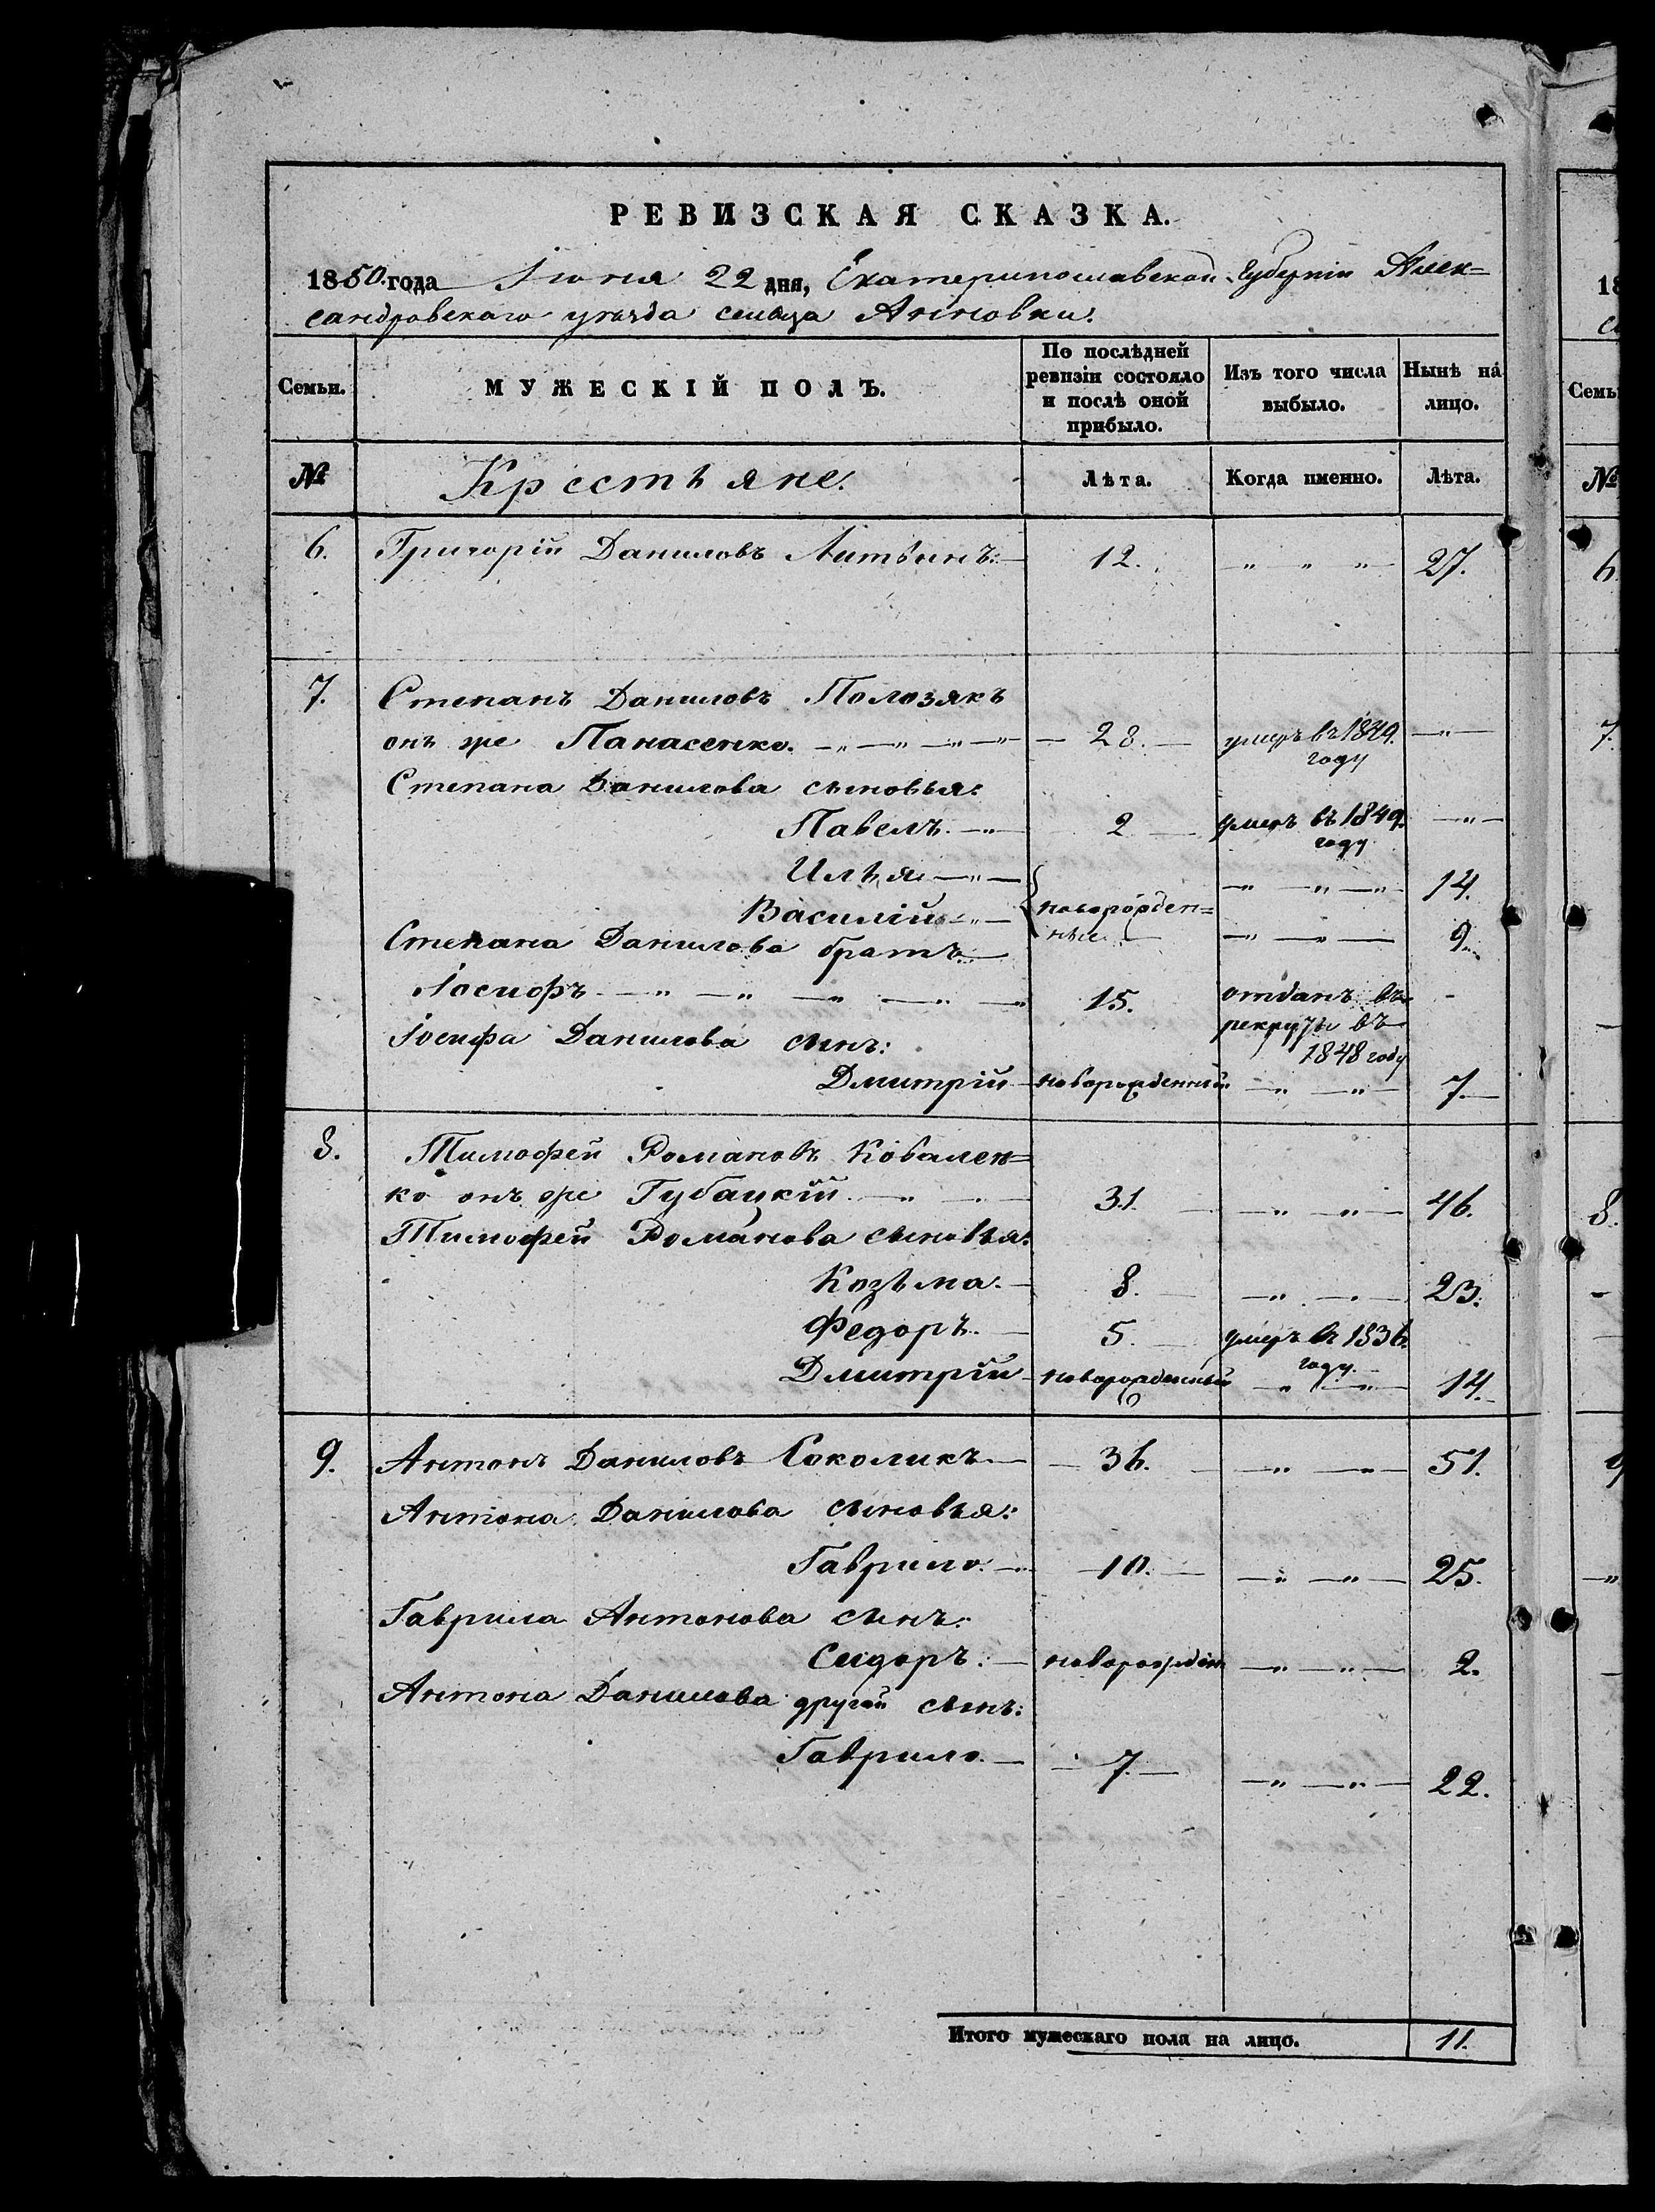 РЕВИЗСКАЯ СКАЗКА.
1850 года Іюня 22 дня, Екатеринославской Губерніи Алек=
сандровскаго уѣзда сельца Анновки.
Семьи. МУЖЕСКІЙ ПОЛЪ. По послѣдней ревизіи состояло и послѣ оной прибыло. Изъ того числа выбыло. Нынѣ на лицо.
№ Крестьяне. Лѣта. Когда именно. Лѣта.
6. Григорій Даниловъ Литвинъ. 12. „ „ „ 27.
7. Степанъ Даниловъ Полозякъ
онъ же Панасенко. 28. умеръ въ 1849. году „
Степана Данилова сыновья:
Павелъ. 2 умеръ въ 1849. году „
Илья „ новорожден= „ „ „ 14.
Василій „ ные „ „ 9.
Степана Данилова братъ
Іосифъ „ „ „ „ „ 15. отданъ въ рекруты въ 1848 году -
Іосифа Данилова сынъ:
Дмитрій новорожденный „ „ 7.
8. Тимофей Романовъ Ковален=
ко онъ же Губацкій 31. „ „ 46.
Тимофей Романова сыновья:
Козьма. 8. „ „ 23.
Федоръ. 5. умеръ въ 1836. году.
Дмитрій новорожденный „ „ 14.
9. Антонъ Даниловъ Соколикъ 36. „ „ 51.
Антона Данилова сыновья:
Гаврило. 10. „ „ 25.
Гаврила Антонова сынъ:
Сидоръ. новорожден „ „ 2.
Антона Данилова другой сынъ:
Гаврило. 7. „ „ 22.
Итого мужескаго пола на лицо. 11.
18
Семь
№
6.
7.
8.
9